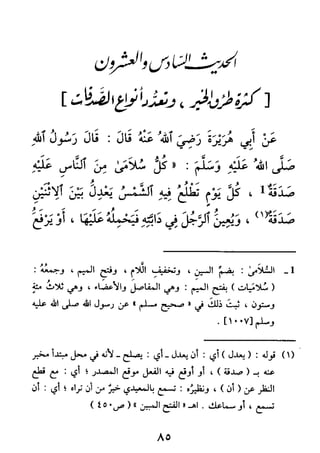 الحديث السادس والعشرون
[ كثرة طرق الخير ، وتعدد أنواع الصدقات ]
عَنْ أَبِي هُرَيْرَةَ رَضِيَ اللهُ عَنْهُ قَالَ : قَالَ رَسُولُ اللهِ
صَلَّى اللهُ عَلَيْهِ وَسَلَّمَ : « كُلُّ سُلَامَىٰ مِنَ النَّاسِ عَلَيْهِ
صَدَقَةٌ 1 ، كُلَّ يَوْمٍ تَطْلُعُ فِيهِ الشَّمْسُ يَعْدِلُ بَيْنَ الِاثْنَيْنِ
صَدَقَةٌ (١) ، وَيُعِينُ الرَّجُلَ فِي دَابَّتِهِ فَيَحْمِلُهُ عَلَيْهَا ، أَوْ يَرْفَعُ
1 ـ السُّلَامَىٰ : بضم السين ، وتخفيف اللَّام ، وفتح الميم ، وجمعُهُ :
( سُلَاميات ) بفتح الميم : وهي المفاصل والأعضاء ، وهي ثلاثُ مئةٍ
وستون ، ثبتَ ذلكَ في « صحيح مسلم » عن رسول الله صلى الله عليه
وسلم [١٠٠٧] .
(١) قوله : ( يعدل ) أي : أن يعدل ـ أي : يصلح ـ لأنه في محل مبتدأ مخبر
عنه بـ ( صدقة ) ، أو أوقع فيه الفعل موقع المصدر ؛ أي : مع قطع
النظر عن ( أن ) ، ونظيرُه : تسمع بالمعيدي خيرٌ من أن تراه ؛ أي : أن
تسمع ، أو سماعك . اهـ « الفتح المبين » ( ص ٤٥٠ )
٨٥